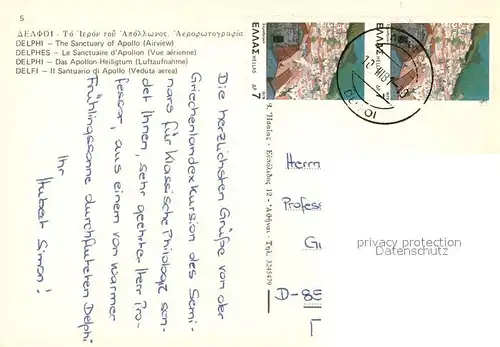 5
ΔΕΛΦΟΙ - Τὸ Ἱερὸν τοῦ Ἀπόλλωνος. Ἀεροφωτογραφία
DELPHI - The Sanctuary of Apollo (Airview)
DELPHES - Le Sanctuaire d'Apollon (Vue aérienne)
DELPHI - Das Apollon-Heiligtum (Luftaufnahme)
DELFI - Il Santuario di Apollo (Veduta aerea)
Die herzlichsten Grüße von der
Griechenlandexkursion des Semi-
nars für Klassische Philologie sen-
det Ihnen, sehr geehrter Herr Pro-
fessor, aus einem von warmer
Frühlingssonne durchfluteten Delphi
Ihr
Hubert Simon!
12 - Ἀθῆναι - Τηλ. 3245479
ΕΛΛΑΣ HELLAS
ΔΡ 7
ΕΛΛΑΣ
Herrn
Profess
G
D-85
privacy protection
Datenschutz